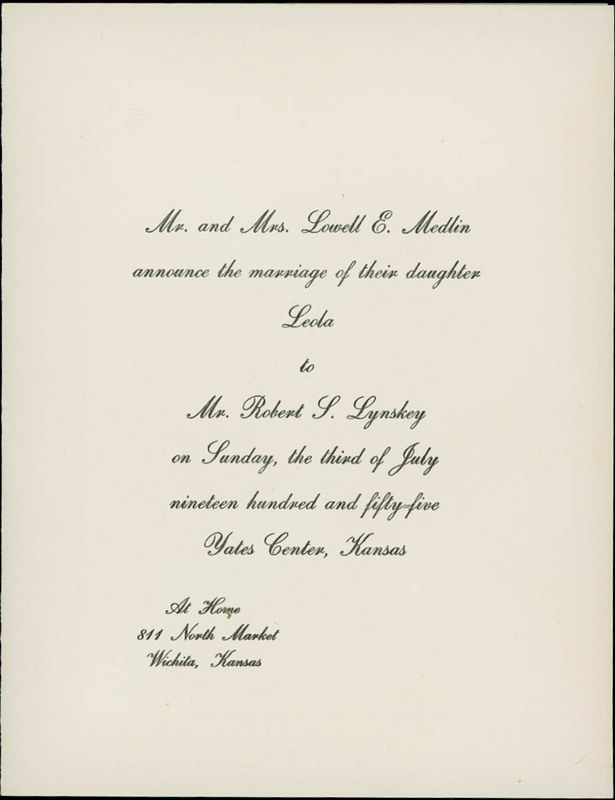 Mr. and Mrs. Lowell E. Medlin
announce the marriage of their daughter
Leola
to
Mr. Robert S. Lynskey
on Sunday, the third of July
nineteen hundred and fifty=five
Yates Center, Kansas
At Home
811 North Market
Wichita, Kansas